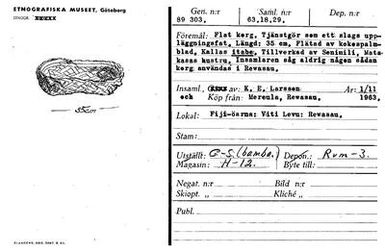 ETNOGRAFISKA MUSEET, Göteborg
35cm
Gen. n:r
89 303.
Saml. n:r
63,18,29.
Dep. n:r
Föremål: Flat korg, Tjänstgör som ett slags upp-
läggningsfat, Längd: 35 cm, Flätad av kokospalm-
blad, Kallas
Tillverkad av Senimili,
kustru, Insamlaren såg aldrig någon sådan
korg användas i Rewasau.
Insaml. av K. E. Larsson År: 1/11
och Köp från: Mereula, Rewasau, 1963,
Lokal: Fiji-öarna: Viti Levu: Rewasau,
Stam:
Utställt: G-S. (bambu.) Depon.: Rum-3.
Magasin: H-12. Byte till:
Negat. n:r Bild n:r
Skiopt. n:r Kliché n:r
Publ.